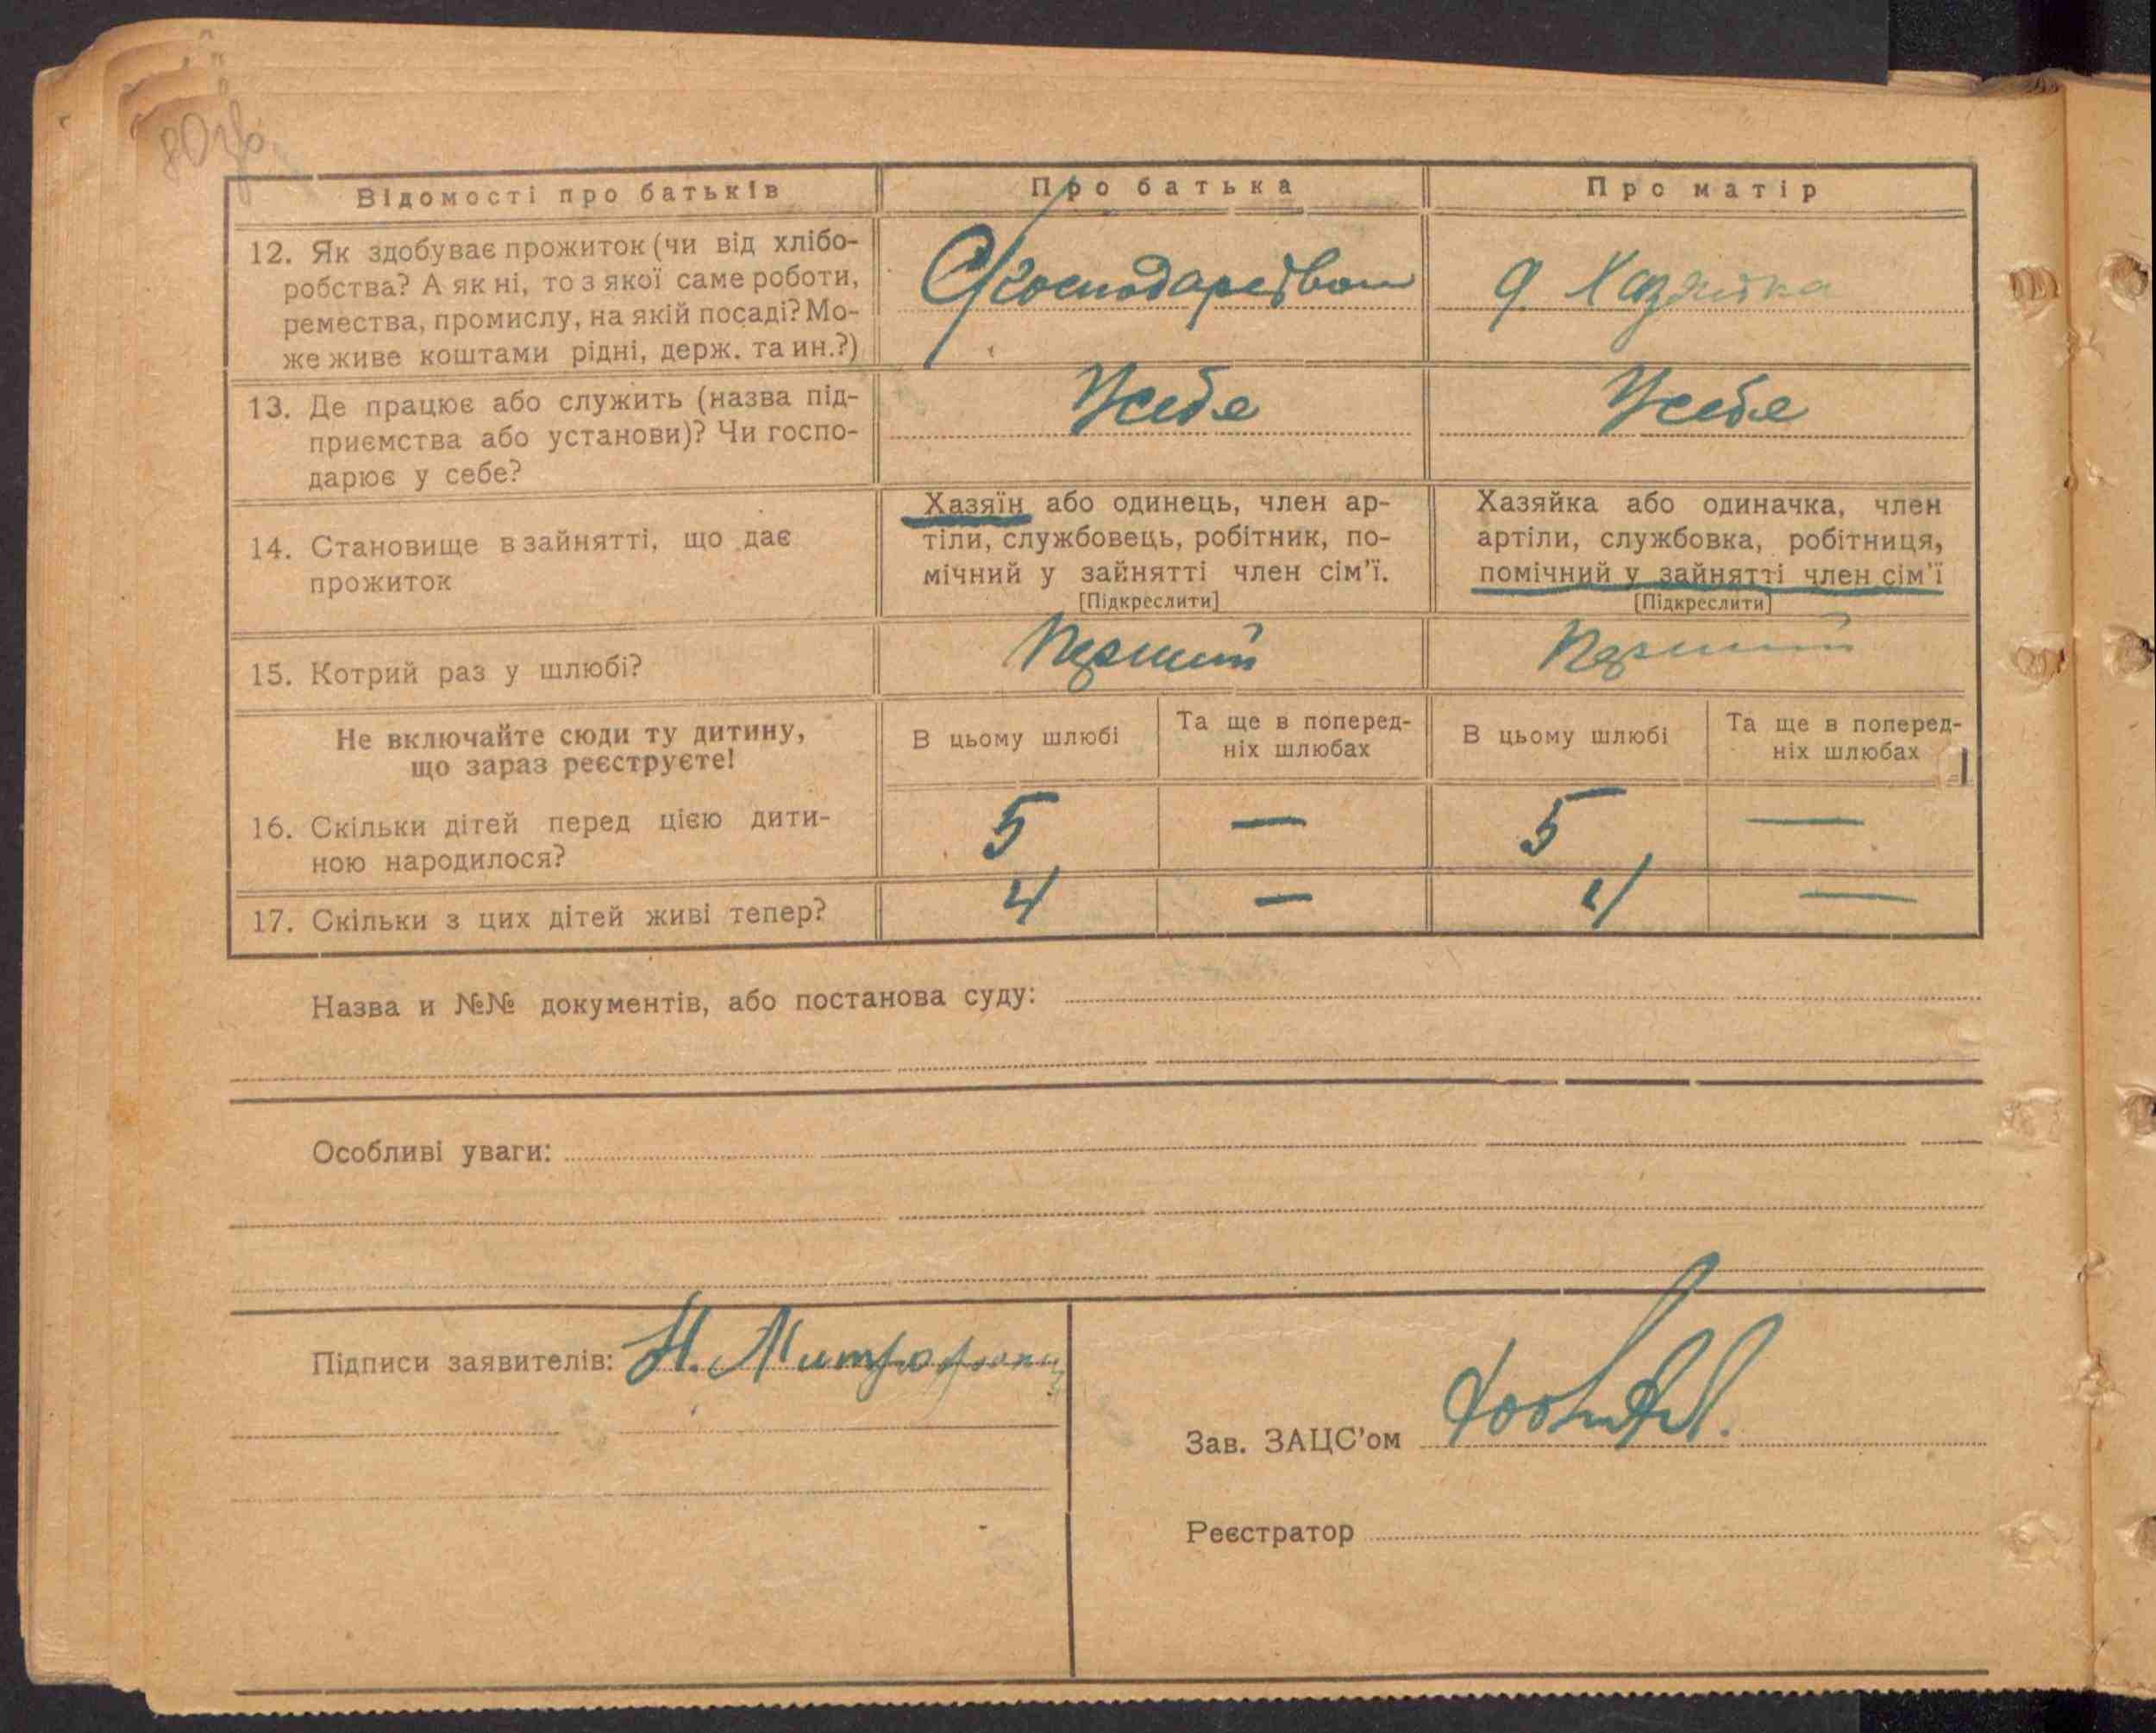 80зв.
Відомості про батьків
Про батька
Про матір
12. Як здобуває прожиток (чи від хлібо-
робства? А як ні, то з якої саме роботи,
ремества, промислу, на якій посаді? Мо-
же живе коштами рідні, держ. та ин.?)
С/господарством
д. Хазяйка
13. Де працює або служить (назва під-
приємства або установи)? Чи госпо-
дарює у себе?
У себе
У себе
14. Становище в зайнятті, що дає
прожиток
Хазяїн або одинець, член ар-
тіли, службовець, робітник, по-
мічний у зайнятті член сім'ї.
[Підкреслити]
Хазяйка або одиначка, член
артіли, службовка, робітниця,
помічний у зайнятті член сім'ї
[Підкреслити]
15. Котрий раз у шлюбі?
Перший
Перший
Не включайте сюди ту дитину,
що зараз реєструєте!
В цьому шлюбі
Та ще в поперед-
ніх шлюбах
В цьому шлюбі
Та ще в поперед-
ніх шлюбах
16. Скільки дітей перед цією дити-
ною народилося?
5
—
5
—
17. Скільки з цих дітей живі тепер?
4
—
4
—
Назва и №№ документів, або постанова суду:
Особливі уваги:
Підписи заявителів:
Зав. ЗАЦС'ом
Реєстратор